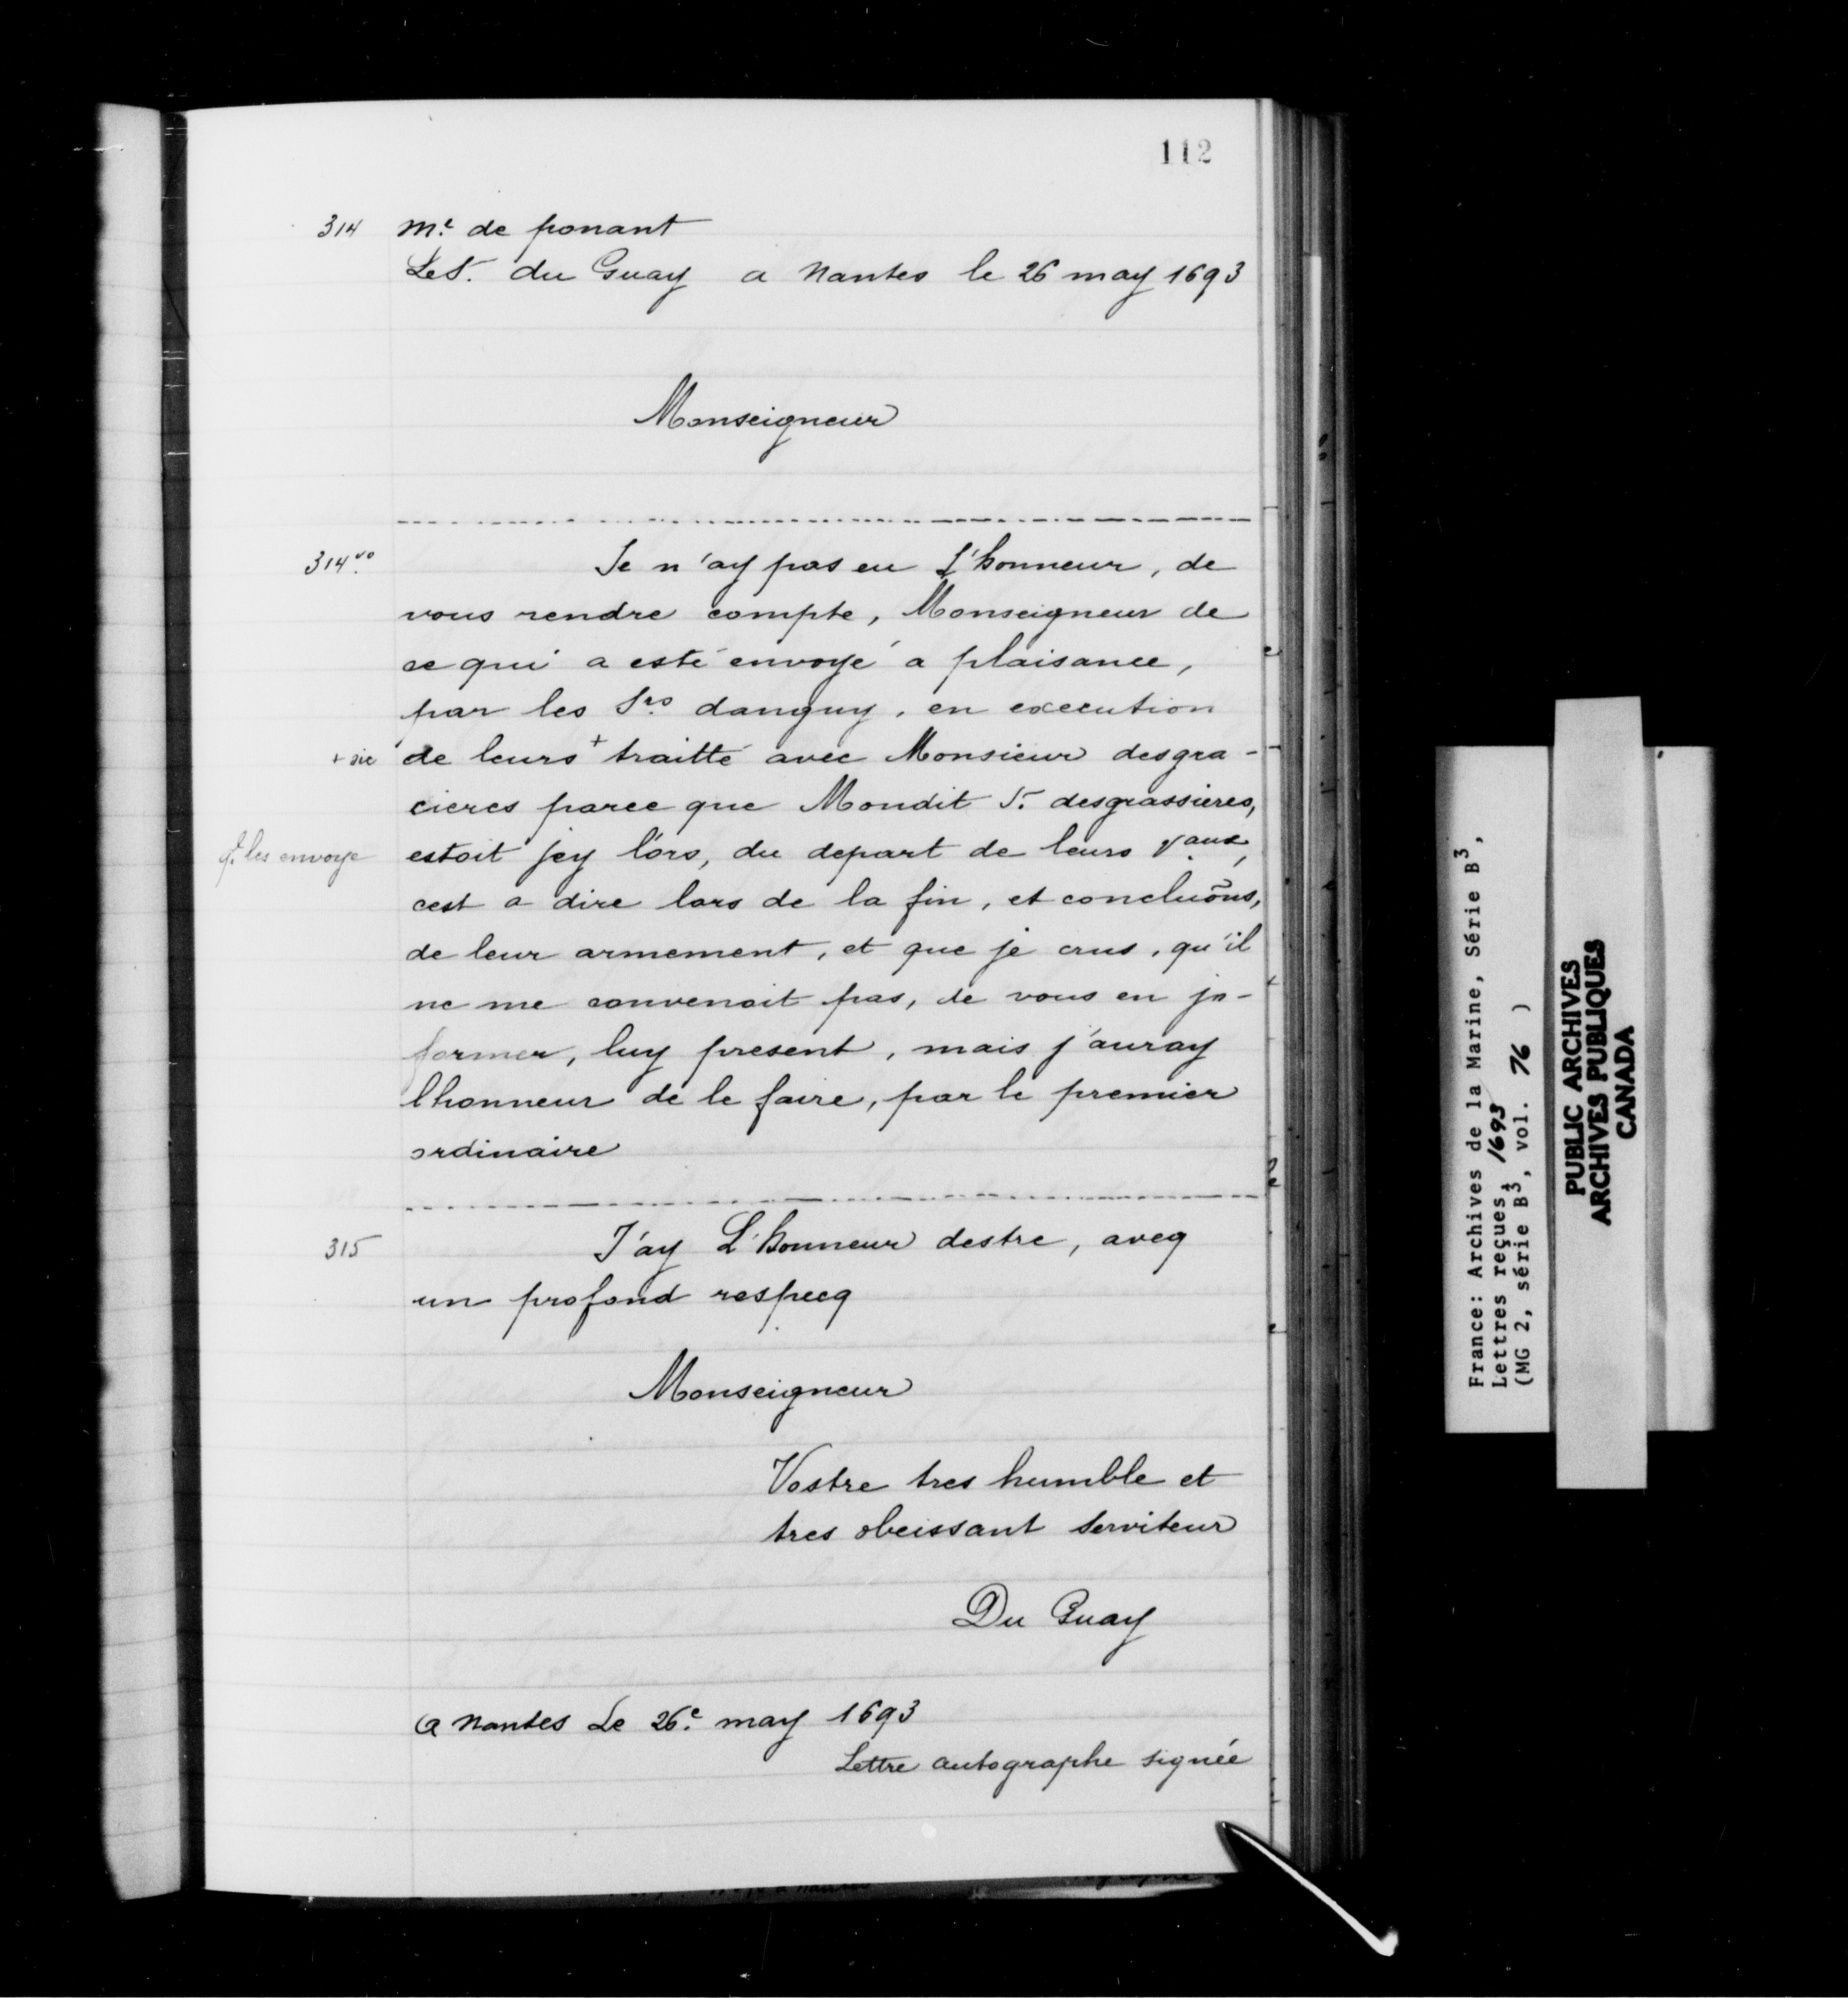 112
314 Me. de ponant
Le S. du Guay a Nantes le 26 may 1693
Monseigneur
314vo. Je n'ay pas eu L'honneur, de
vous rendre compte, Monseigneur de
ce qui a esté envoyé a plaisance,
par les Srs. danguy, en execution
+ sic de leurs + traitté avec Monsieur desgra-
cieres parce que Mondit Sr. desgrassieres,
qt. les envoye estoit jcy lors, du depart de leurs vaux,
cest a dire lors de la fin, et concluõns,
de leur armement, et que je crus, qu'il
ne me convenoit pas, de vous en jn-
former, luy present, mais j'auray
lhonneur de le faire, par le premier
ordinaire
315 J'ay L'honneur destre, aveq
un profond respecq
Monseigneur
Vostre tres humble et
tres obeissant serviteur
Du Guay
a Nantes Le 26e. may 1693
Lettre autographe signée
France: Archives de la Marine, Série B3,
Lettres reçues, 1693
(MG 2, série B3, vol. 76 )
PUBLIC ARCHIVES
ARCHIVES PUBLIQUES
CANADA